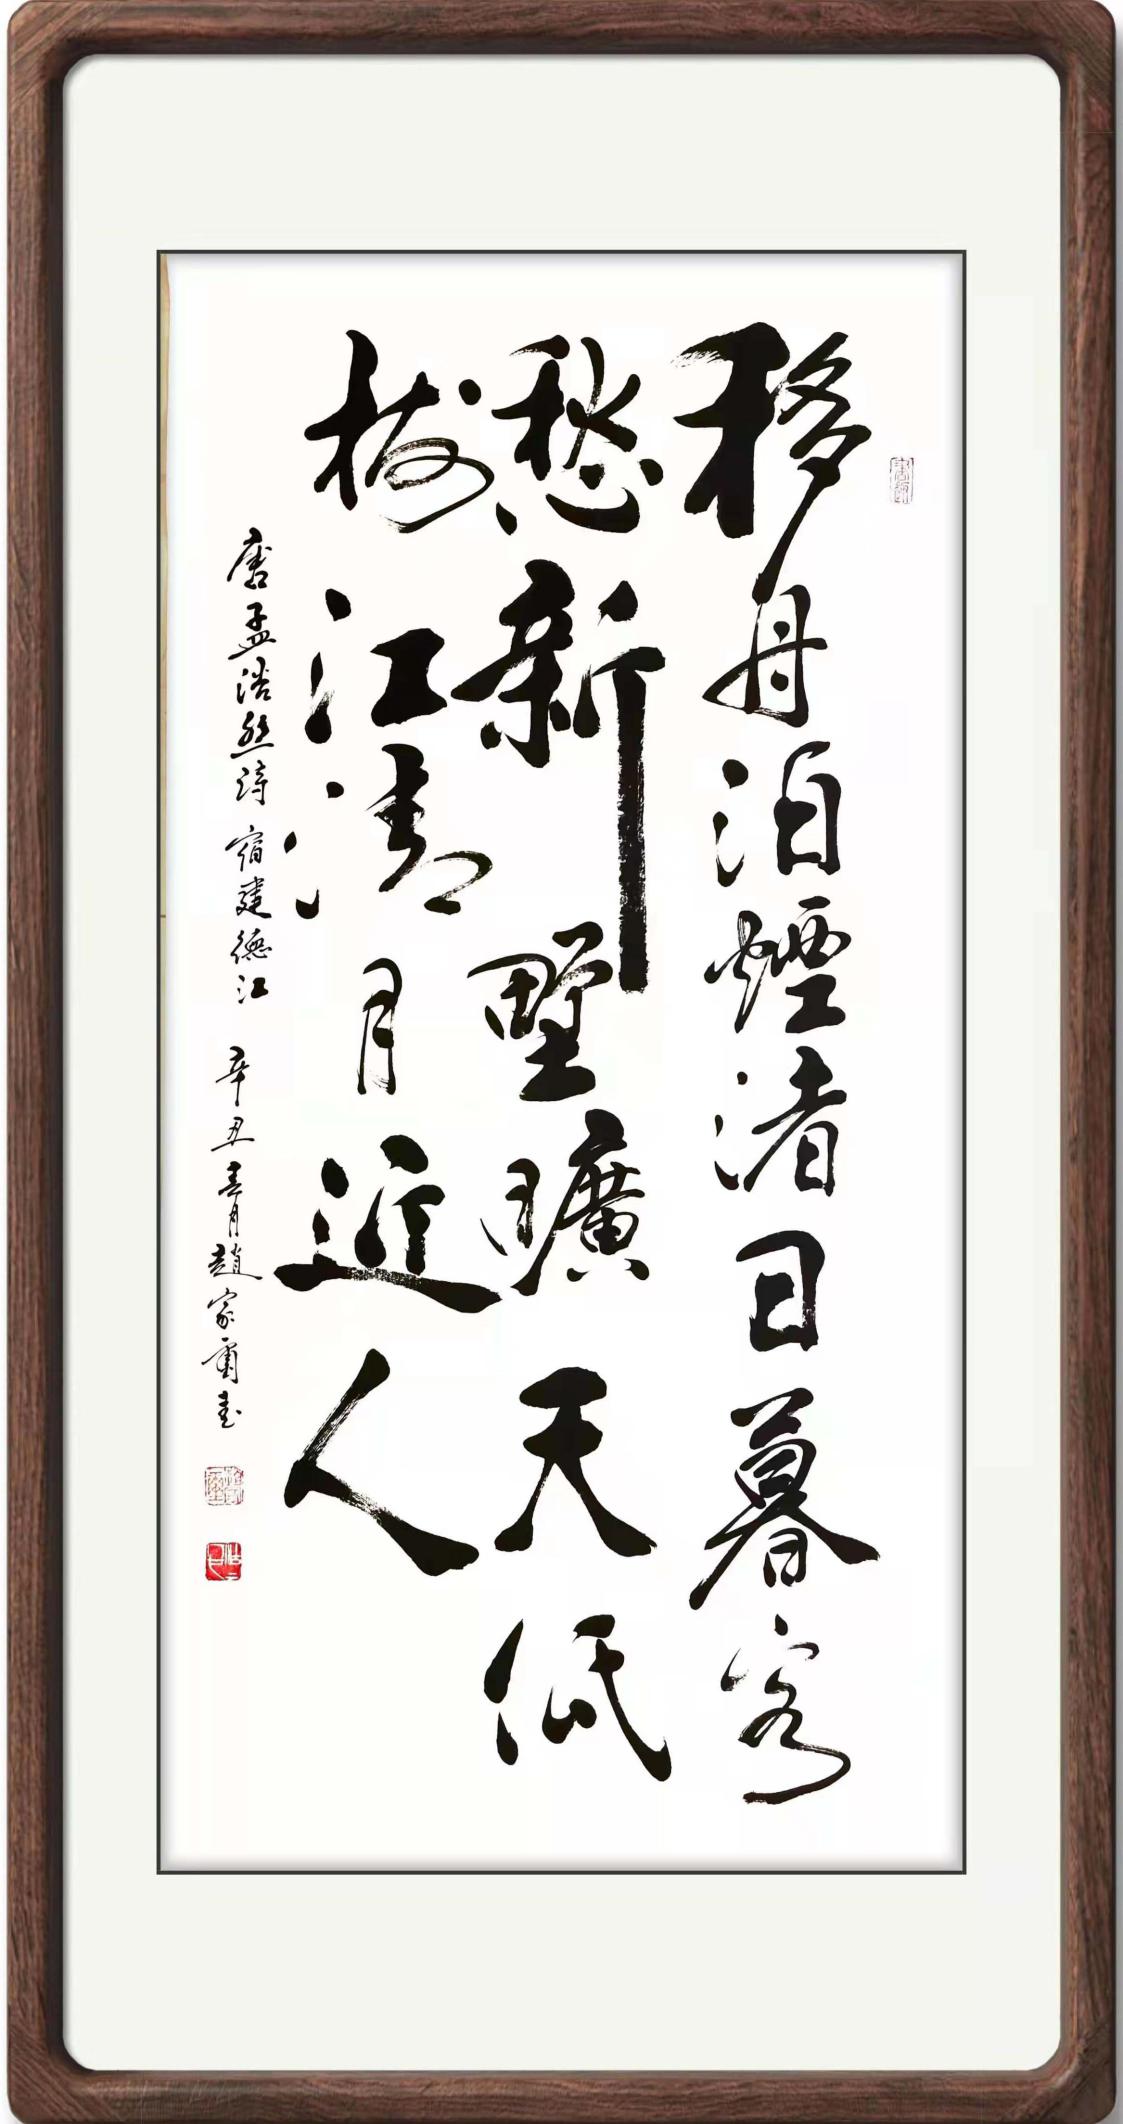 移舟泊煙渚日暮客
愁新野曠天低
樹江清月近人
唐孟浩然詩 宿建德江 辛丑春月趙家書